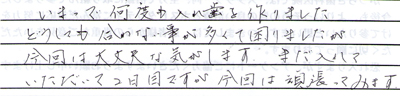 いままで何度も入れ歯を作りました
どうしても合わない事が多くて困りましたが
今回は大丈夫な気がします。まだ入れて
いただいて2日目ですが今回は頑張ってみます。